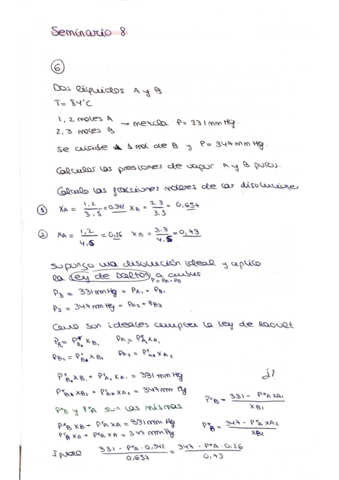 Seminario 8
⑥
Dos líquidos A y B.
T = 84°C
1,2 moles A → mezcla P = 331 mmHg
2,3 moles B
se añade 1 mol de B y P = 347 mmHg.
Calcular las presiones de vapor A y B puros.
Calculo las fracciones molares de las disoluciones
① XA = 1,2/3,5 = 0,342 XB = 2,3/3,5 = 0,657
② XA = 1,2/4,5 = 0,26 XB = 3,3/4,5 = 0,73
Supongo una disolución ideal y aplico
la Ley de Dalton a ambas
P = PA + PB
P1 = 331 mmHg = PA1 + PB1
P2 = 347 mmHg = PA2 + PB2
Como son ideales cumplen la ley de Raoult
P°B XB1 + P°A XA1 = 331 mmHg
P°B XB2 + P°A XA2 = 347 mmHg
P°B y P°A son las mismas
P°B XB + P°A XA = 331 mmHg
P°B XB + P°A XA = 347 mmHg
P°B = 331 - P°A XA1 / XB1
P°B = 347 - P°A XA2 / XB2
Igualo 331 - P°A · 0,342 / 0,657 = 347 - P°A · 0,26 / 0,73